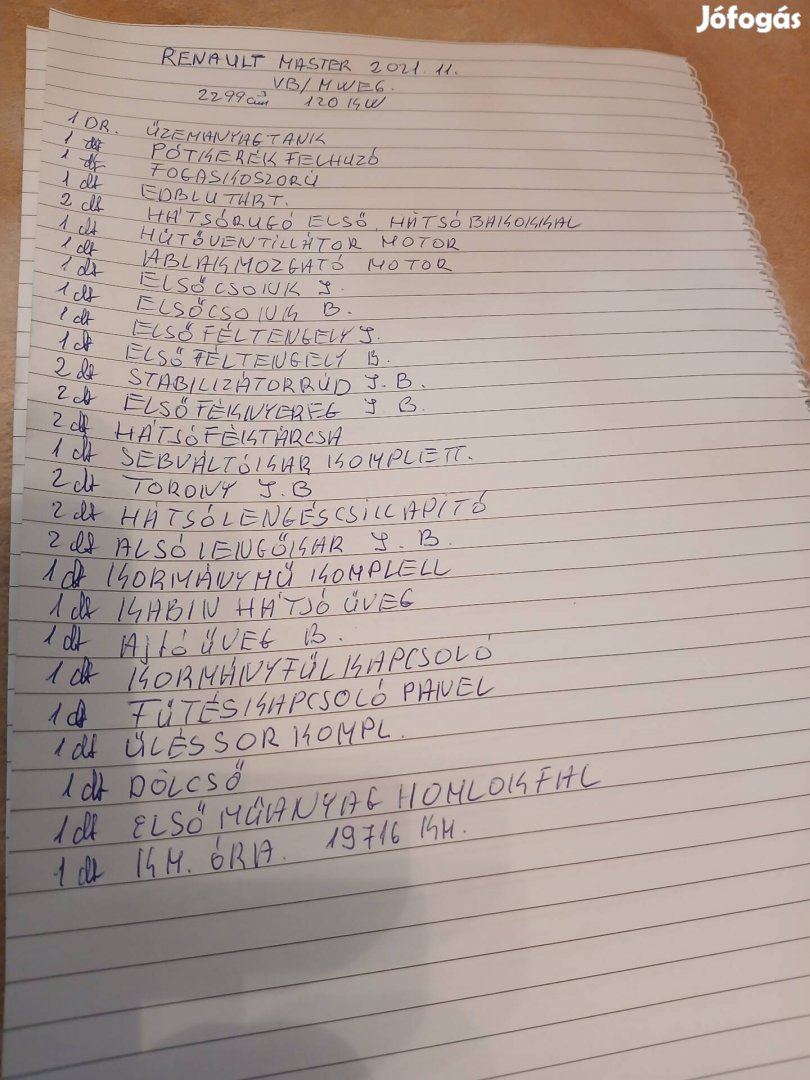 Jófogás
RENAULT MASTER 2021.11.
VB/MWE6.
2299cm³ 120 KW
1 DR. ÜZEMANYAGTANK
1 dt PÓTKERÉK FELHUZÓ
1 dt FOGASKOSZORÚ
1 dt EDBLUTART.
2 dt HÁTSÓRUGÓ ELSŐ, HÁTSÓ BAKOKKAL
1 dt HŰTŐVENTILLÁTOR MOTOR
1 dt ABLAKMOZGATÓ MOTOR
1 dt ELSŐCSONK J.
1 dt ELSŐCSONK B.
1 dt ELSŐ FÉLTENGELY J.
1 dt ELSŐ FÉLTENGELY B.
2 dt STABILIZÁTORRÚD J.B.
2 dt ELSŐFÉKNYEREG J.B.
2 dt HÁTSÓFÉKTÁRCSA
1 dt SEBVÁLTÓKAR KOMPLETT.
2 dt TORONY J.B
2 dt HÁTSÓLENGÉSCSILLAPÍTÓ
2 dt ALSÓ LENGŐKAR J.B.
1 dt KORMÁNYMŰ KOMPLELL
1 dt KABIN HÁTSÓ ÜVEG
1 dt AJTÓ ÜVEG B.
1 dt KORMÁNYFÜLKAPCSOLÓ
1 dt FŰTÉSKAPCSOLÓ PANEL
1 dt ÜLÉSSOR KOMPL.
1 dt DÖLCSŐ
1 dt ELSŐ MŰANYAG HOMLOKFAL
1 dt KM. ÓRA. 19716 KM.